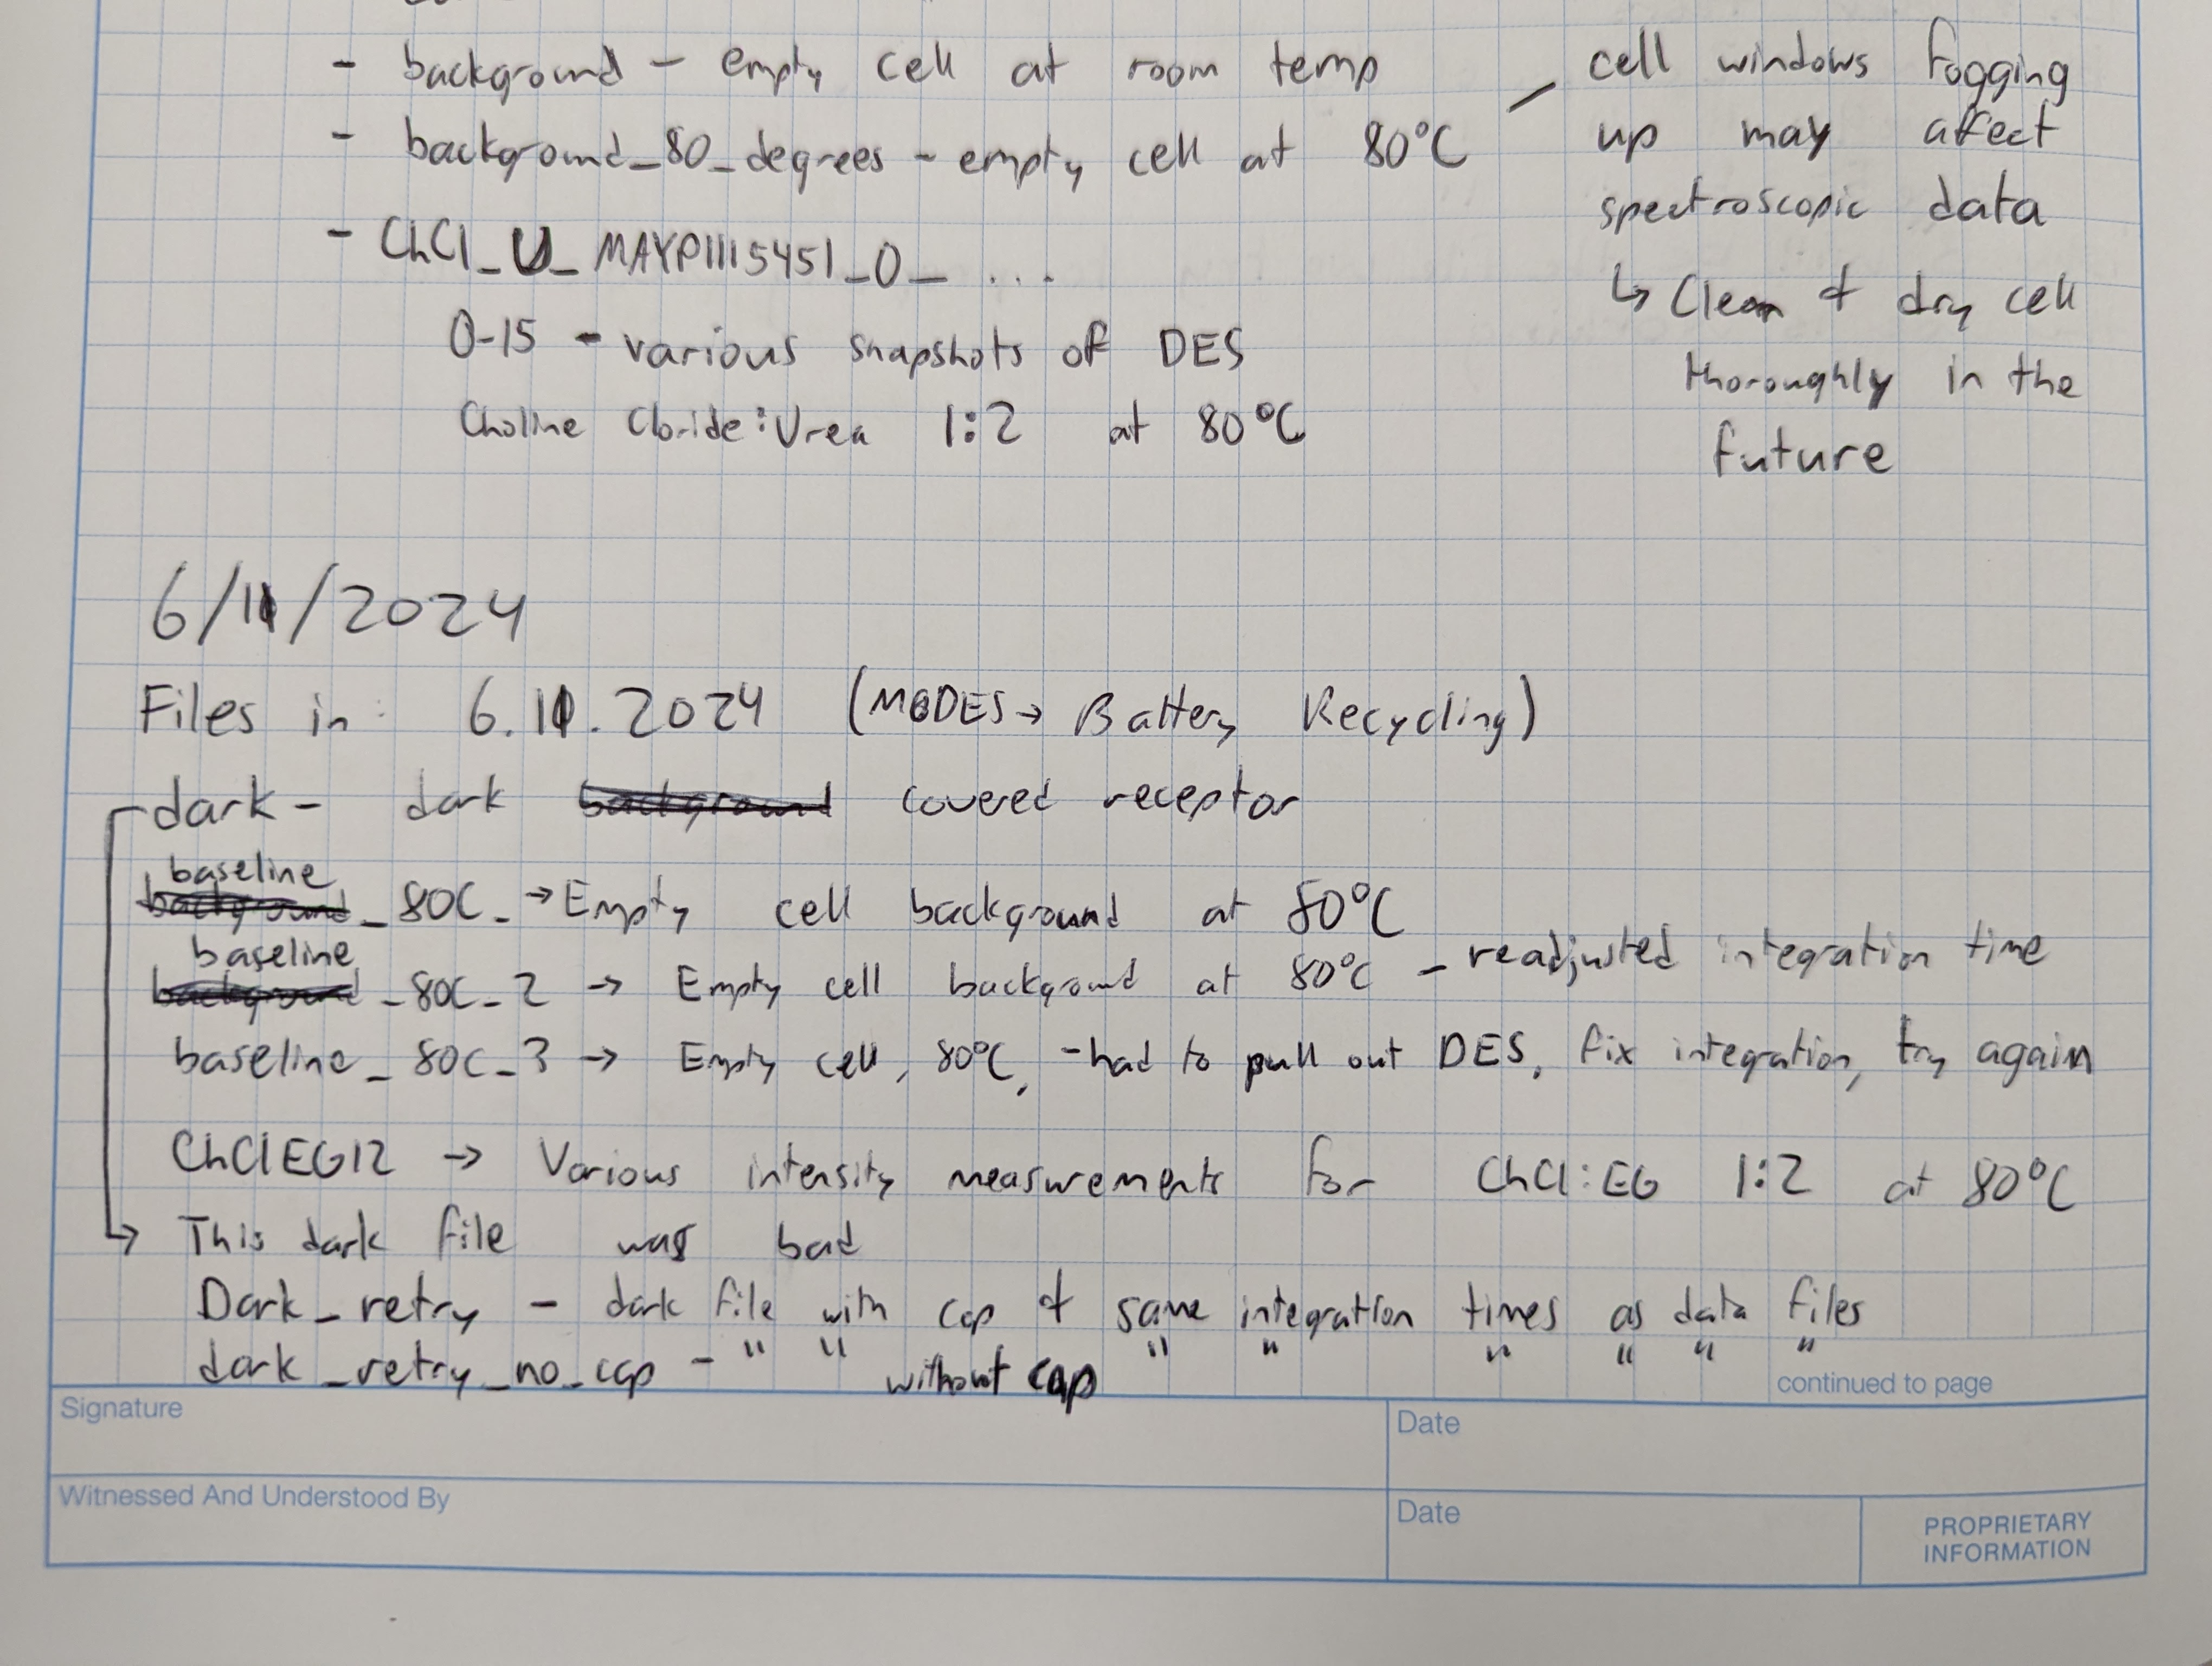 - background - empty cell at room temp
- background_80_degrees - empty cell at 80°C
- ChCl_U_MAYP1115451_0_ ...
0-15 - various snapshots of DES
Choline Cloride:Urea 1:2 at 80°C
cell windows fogging
up may affect
spectroscopic data
↳ Clean & dry cell
thoroughly in the
future
6/11/2024
Files in: 6.11.2024 (MODES→ Battery Recycling)
dark - dark background covered receptor
baseline
background_80C_ → Empty cell background at 80°C
baseline
background_80C_2 → Empty cell background at 80°C - readjusted integration time
baseline_80C_3 → Empty cell, 80°C, - had to pull out DES, fix integration, try again
ChClEG12 → Various intensity measurements for ChCl:EG 1:2 at 80°C
↳ This dark file was bad
Dark_retry - dark file with cap & same integration times as data files
dark_retry_no_cap - " " without cap " " " " " "
continued to page
Signature
Date
Witnessed And Understood By
Date
PROPRIETARY
INFORMATION